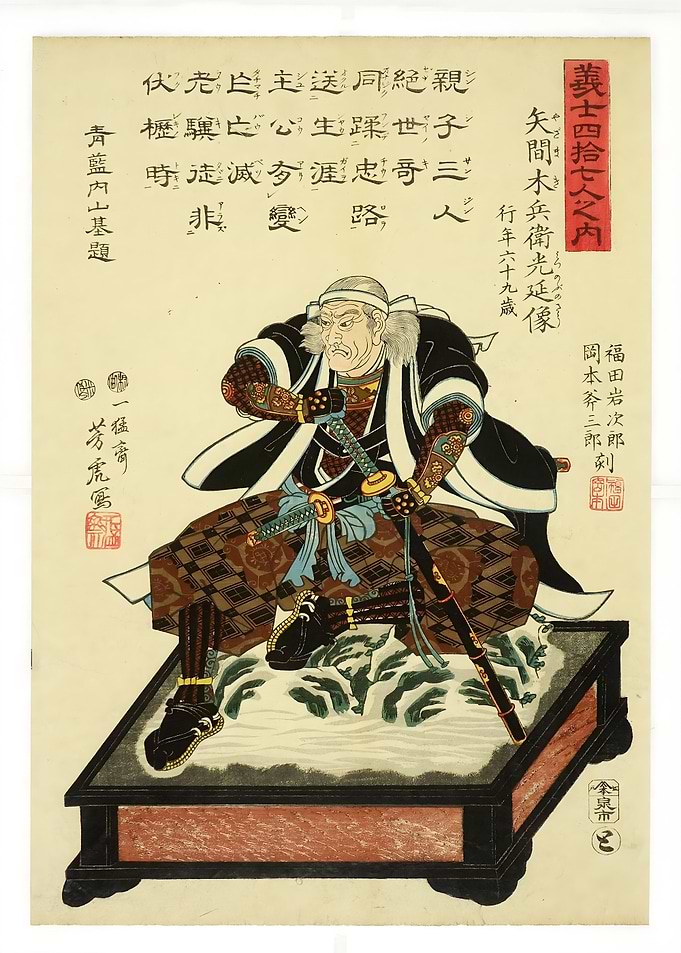 義士四拾七人之内
矢間木兵衛光延像
行年六十九歳
親子三人
絶世奇
同蹂忠路
送生涯
主公有變
乍亡滅
老驥徒非
伏櫪時
青藍内山基題
福田岩次郎
岡本斧三郎刻
一猛齋
芳虎寫
泉市
と